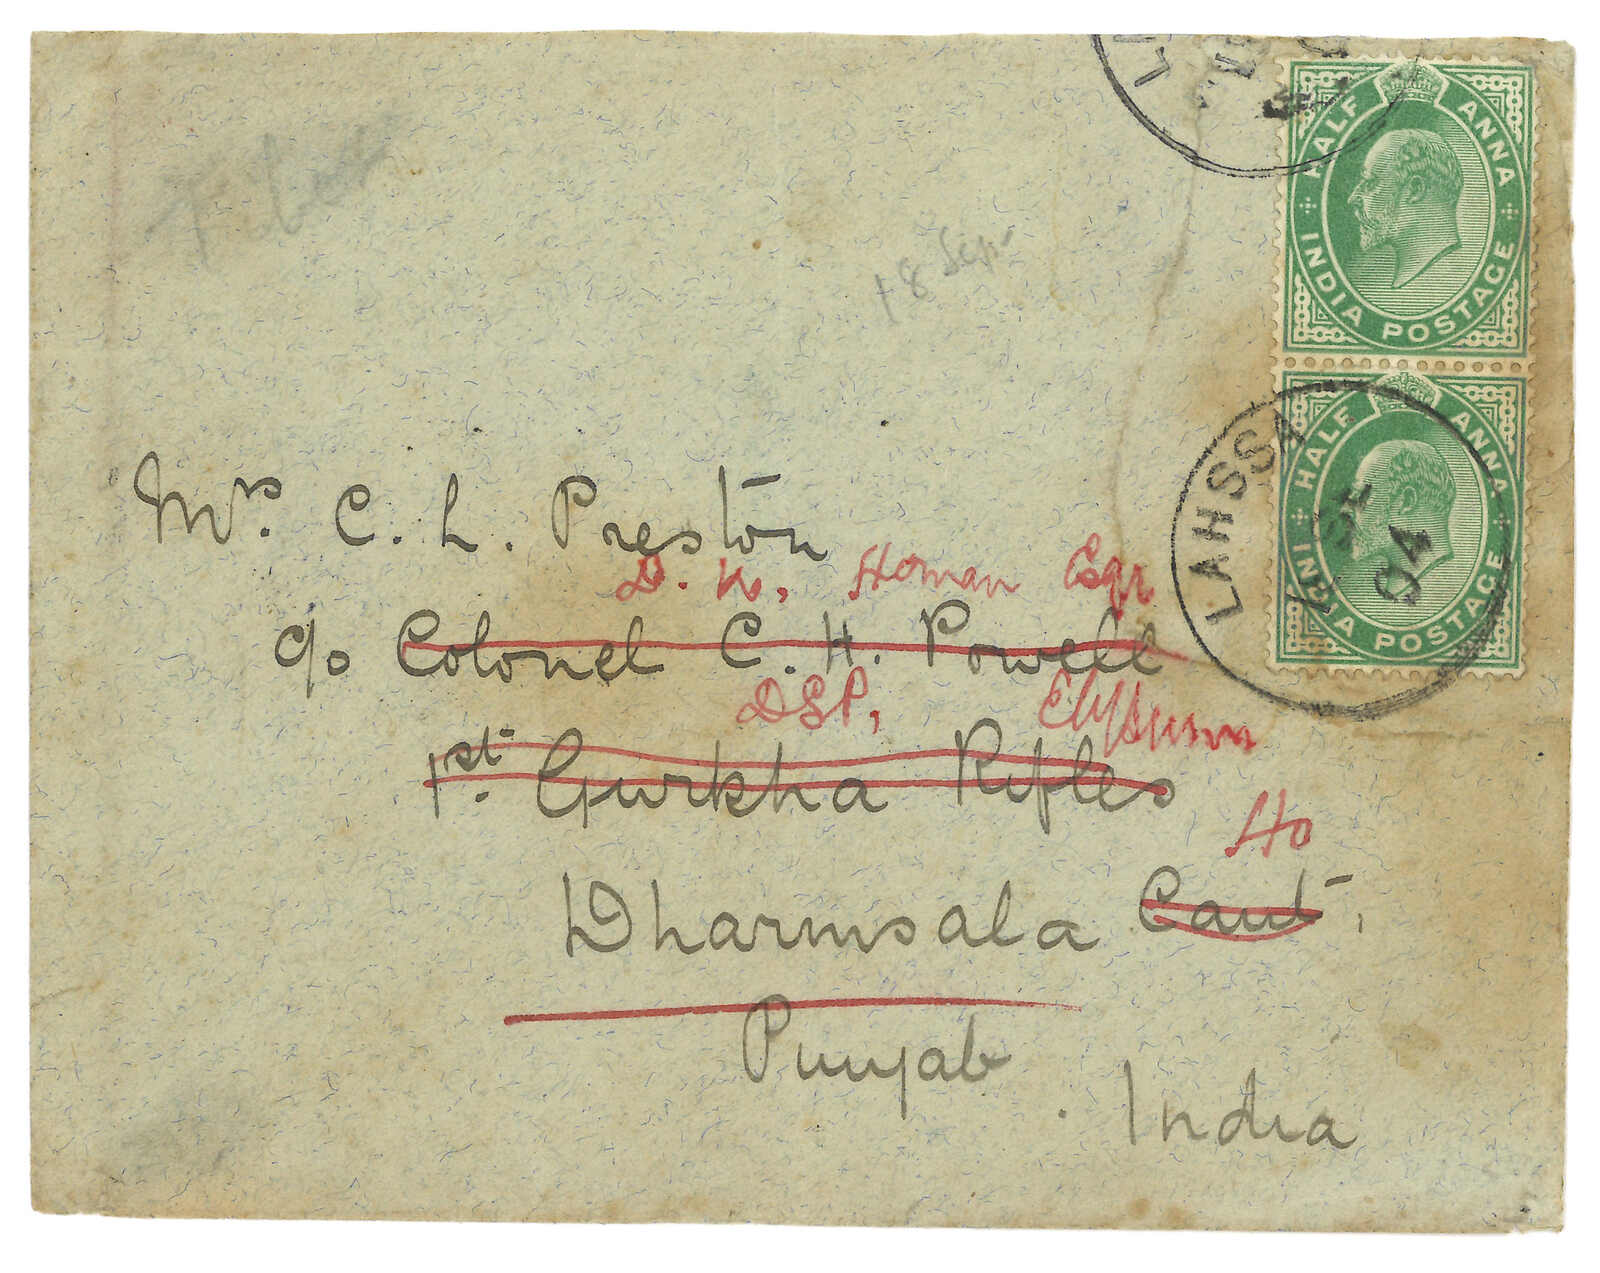 Tibet
18 Sep
HALF ANNA
INDIA POSTAGE
HALF ANNA
INDIA POSTAGE
LAHSSA
SE
04
Mrs. C. L. Preston
D. W. Homan Esqr
c/o Colonel C. H. Powell
DSP,
1st. Gurkha Rifles
Ho
Dharmsala Cant,
Punjab
India